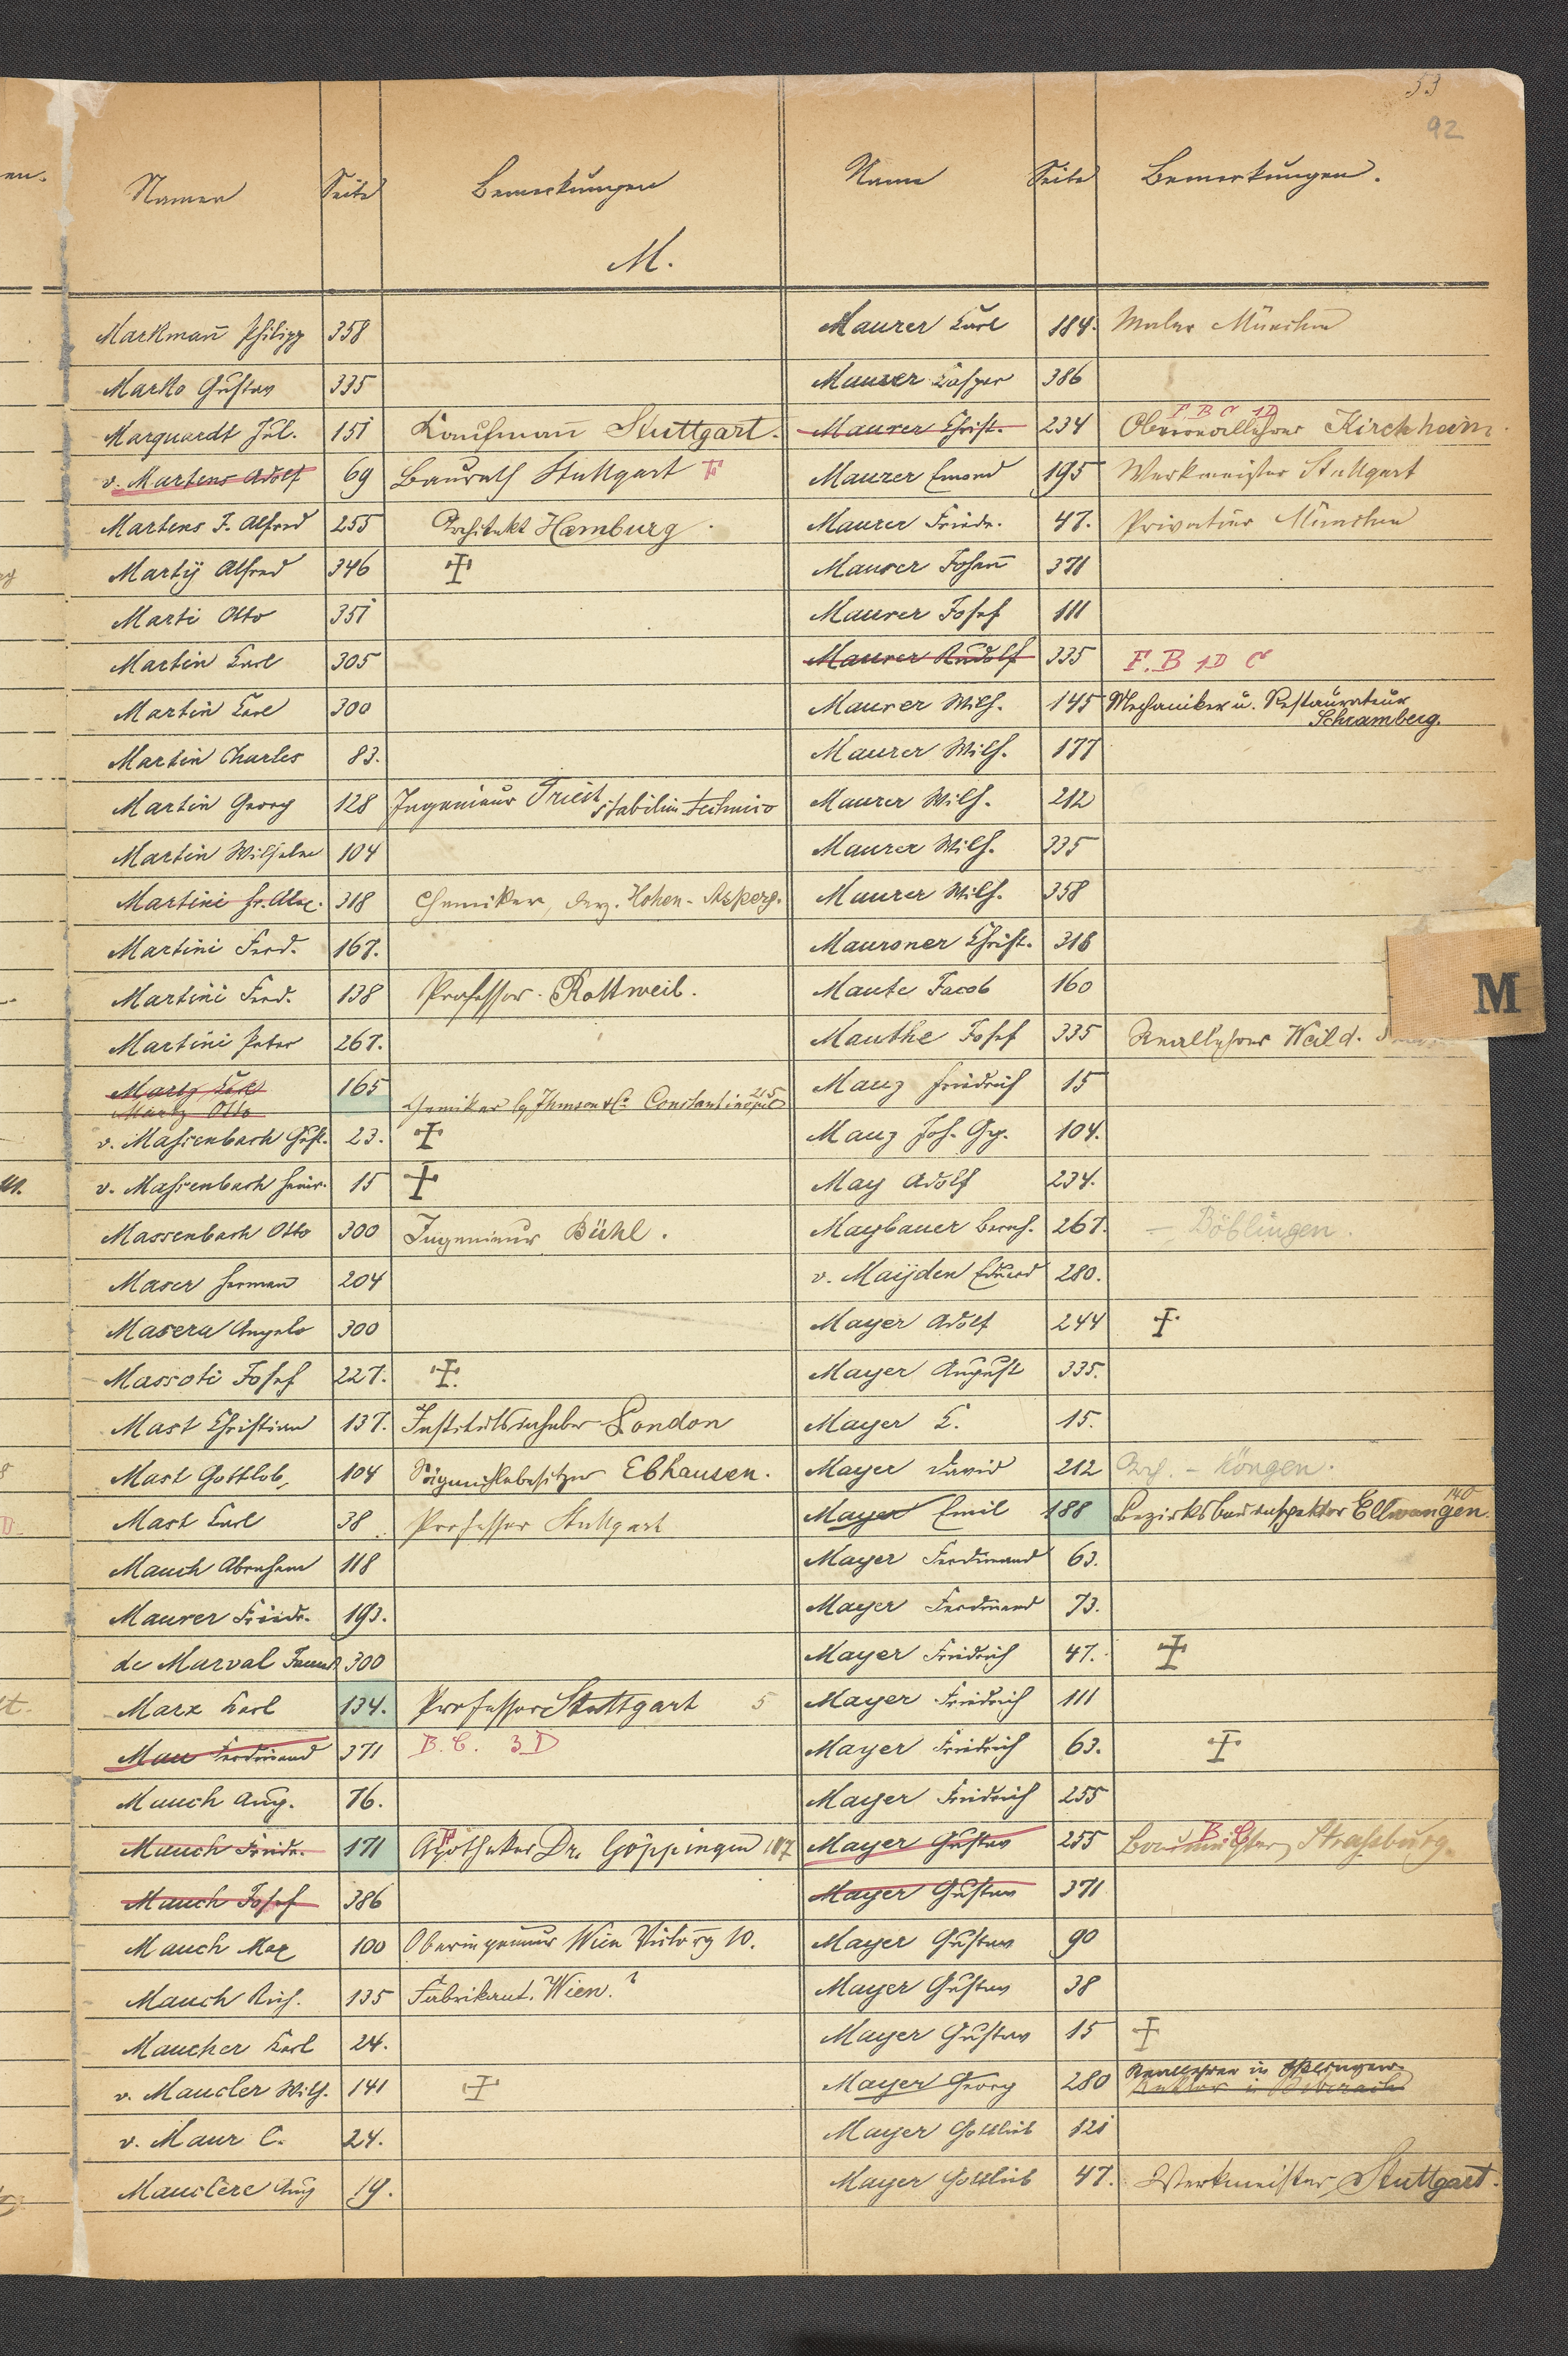 53
92
Namen Seite Bemerkungen
Name Seite Bemerkungen.
M.
Markmañ Philipp 358
Marko Gustav 335
Marquardt Jul. 151 Kaufmañ Stuttgart.
v. Martens Adolf 69 Baurath Stuttgart F
Martens J. Alfred 255 Architekt Hamburg.
Martÿ Alfred 346 ✝
Marti Otto 351
Martin Carl 305
Martin Carl 300
Martin Charles 83.
Martin Georg 128 Ingenieur Triest, stabilim. technico
Martin Wilhelm 104
Martini Fr. Alex. 318 Chemiker, Hohen-Asperg.
Martini Ferd. 167.
Martini Ferd. 138 Professor. Rottweil.
Martini Peter 267.
Martz Carl 165
Martz Otto Chemiker Constantinopel 215
v. Massenbach Gust. 23. ✝
v. Massenbach Heinr. 15 ✝
Massenbach Otto 300 Ingenieur Bühl.
Maser Herman 204
Masera Angelo 300
Massoti Josef 227. ✝
Mast Christian 137. Institutsinhaber London
Mast Gottlob 104 Sägmühlebesitzer Ebhausen.
Mast Carl 38 Professor Stuttgart
Mauch Abraham 118
Maurer Friedr. 193.
de Marval 300
Marx Karl 134. Professor Stuttgart 5
Mau Ferdinand 371 B. C. 3 D
Mauch Aug. 76.
Mauch Friedr. 171 Apotheker Dr. Göppingen 187
F
Mauch Josef 386
Mauch Max 100 Oberingenieur Wien 10.
Mauch Rich. 135 Fabrikant. Wien. ?
Maucher Karl 24.
v. Maucler Wilh. 141 ✝
v. Maur C. 24.
Mauclere Aug 19.
Maurer Carl 184. Maler München
Maurer Casper 386
Maurer Christ. 234 Oberreallehrer Kirchheim.
F. B C 1D
Maurer Emond 195 Werkmeister Stuttgart
Maurer Friedr. 47. Privatier München
Maurer Johañ 371
Maurer Josef 111
Maurer Rudolf 335 F. B 1D C
Maurer Wilh. 145 Mechaniker u. Restaurateur
Schramberg.
Maurer Wilh. 177
Maurer Wilh. 212
Maurer Wilh. 335
Maurer Wilh. 358
Mauroner Christ. 318
Maute Jacob 160
M
Mauthe Josef 335 Reallehrer Weil d.
Mauz Friedrich 15
Mauz Joh. Gg. 104.
May Adolf 234.
Maybauer Bernh. 267. – Böblingen.
v. Maÿden Eduard 280.
Mayer Adolf 244 ✝
Mayer August 335.
Mayer C. 15.
Mayer David 212 – Köngen.
Mayer Emil 188 Bezirksbauinspektor Ellwangen 140
Mayer Ferdinand 63.
Mayer Ferdinand 73.
Mayer Friedrich 47. ✝
Mayer Friedrich 111
Mayer Friedrich 63. ✝
Mayer Friedrich 255
Mayer Gustav 255 Baumeister, Strassburg.
B. C
Mayer Gustav 371
Mayer Gustav 90
Mayer Gustav 38
Mayer Gustav 15 ✝
Mayer Georg 280 Reallehrer in Esslingen.
Rektor in Biberach
Mayer Gottlieb 121
Mayer Gottlieb 47. Werkmeister, Stuttgart.